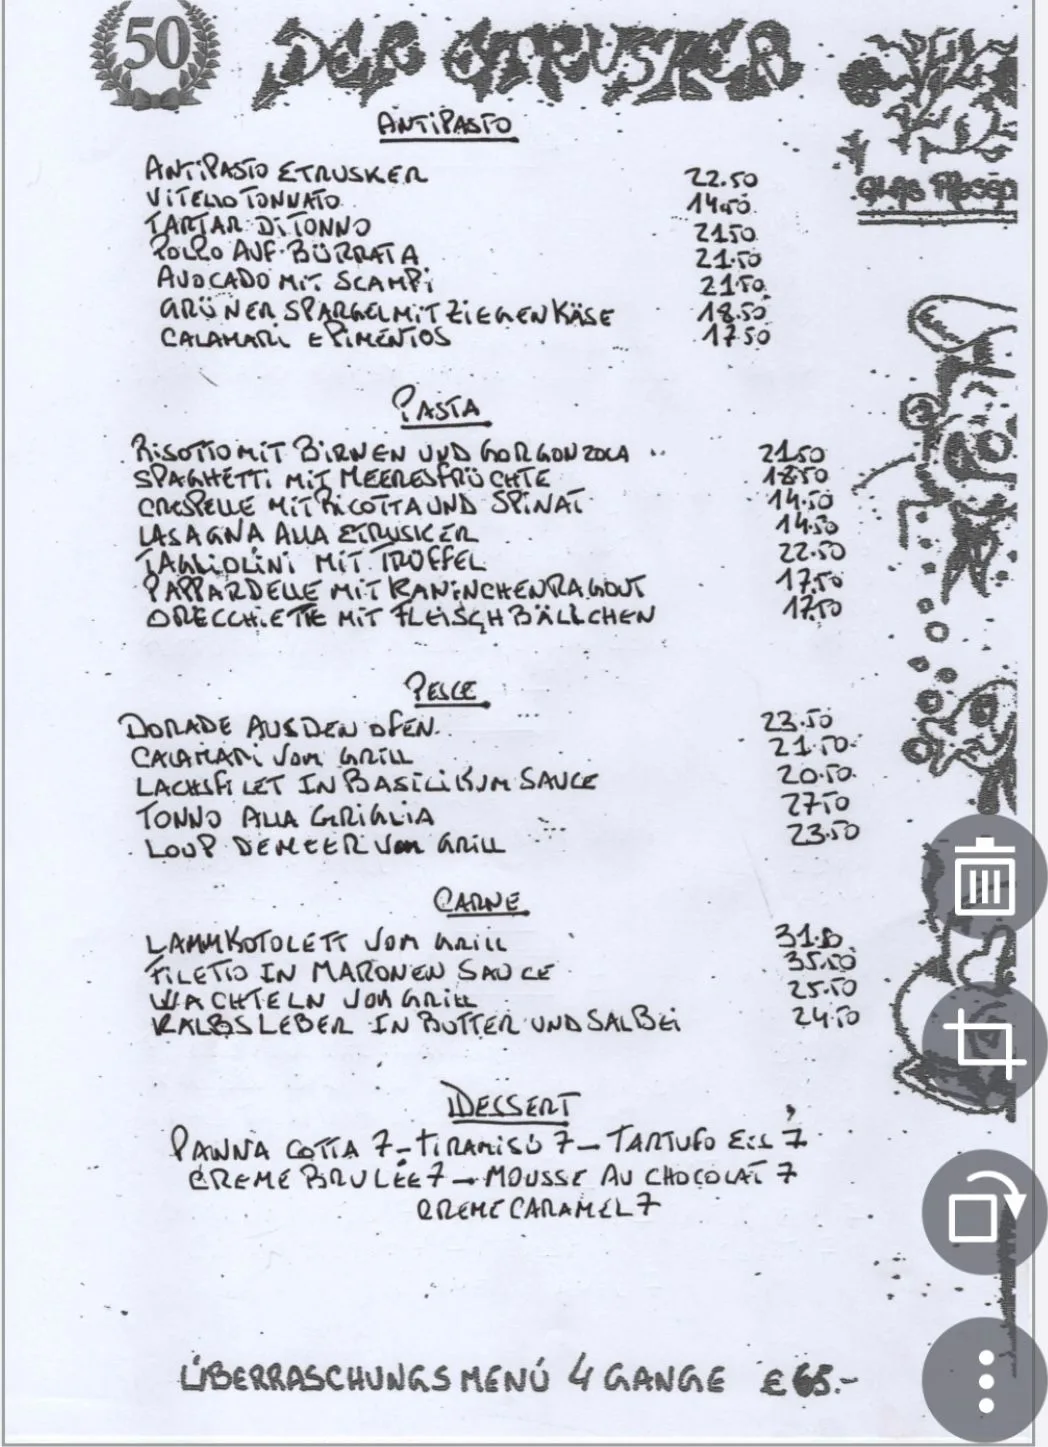 50
DER ETRUSKER
ANTIPASTO
ANTIPASTO ETRUSKER 22.50
VITELLO TONNATO 14.50
TARTAR DI TONNO 21.50
POLPO AUF BÜRRATA 21.50
AVOCADO MIT SCAMPI 21.50
GRÜNER SPARGEL MIT ZIEGENKÄSE 18.50
CALAMARI E PIMENTOS 17.50
PASTA
RISOTTO MIT BIRNEN UND GORGONZOLA 21.50
SPAGHETTI MIT MEERESFRÜCHTE 18.50
CRESPELLE MIT RICOTTA UND SPINAT 14.50
LASAGNA ALLA ETRUSKER 14.50
TAGLIOLINI MIT TRÜFFEL 22.50
PAPPARDELLE MIT KANINCHENRAGOUT 17.50
ORECCHIETTE MIT FLEISCHBÄLLCHEN 17.50
PESCE
DORADE AUS DEN OFEN 23.50
CALAMARI VOM GRILL 21.50
LACHSFILET IN BASILIKUM SAUCE 20.50
TONNO ALLA GRIGLIA 27.50
LOUP DE MEER VOM GRILL 23.50
CARNE
LAMMKOTOLETT VOM GRILL 31.50
FILETTO IN MARONEN SAUCE 35.50
WACHTELN VOM GRILL 25.50
KALBSLEBER IN BUTTER UND SALBEI 24.50
DESSERT
PANNA COTTA 7 - TIRAMISÙ 7 - TARTUFO EIS 7
CREME BRULÉE 7 - MOUSSE AU CHOCOLAT 7
CREME CARAMEL 7
ÜBERRASCHUNGSMENÜ 4 GANGE € 65.-